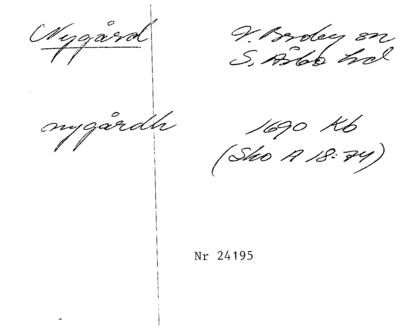 Nygård
V. Broby sn
S. Åsbo hd
nygårdh
1690 Kb
(Sko A 18:74)
Nr 24195